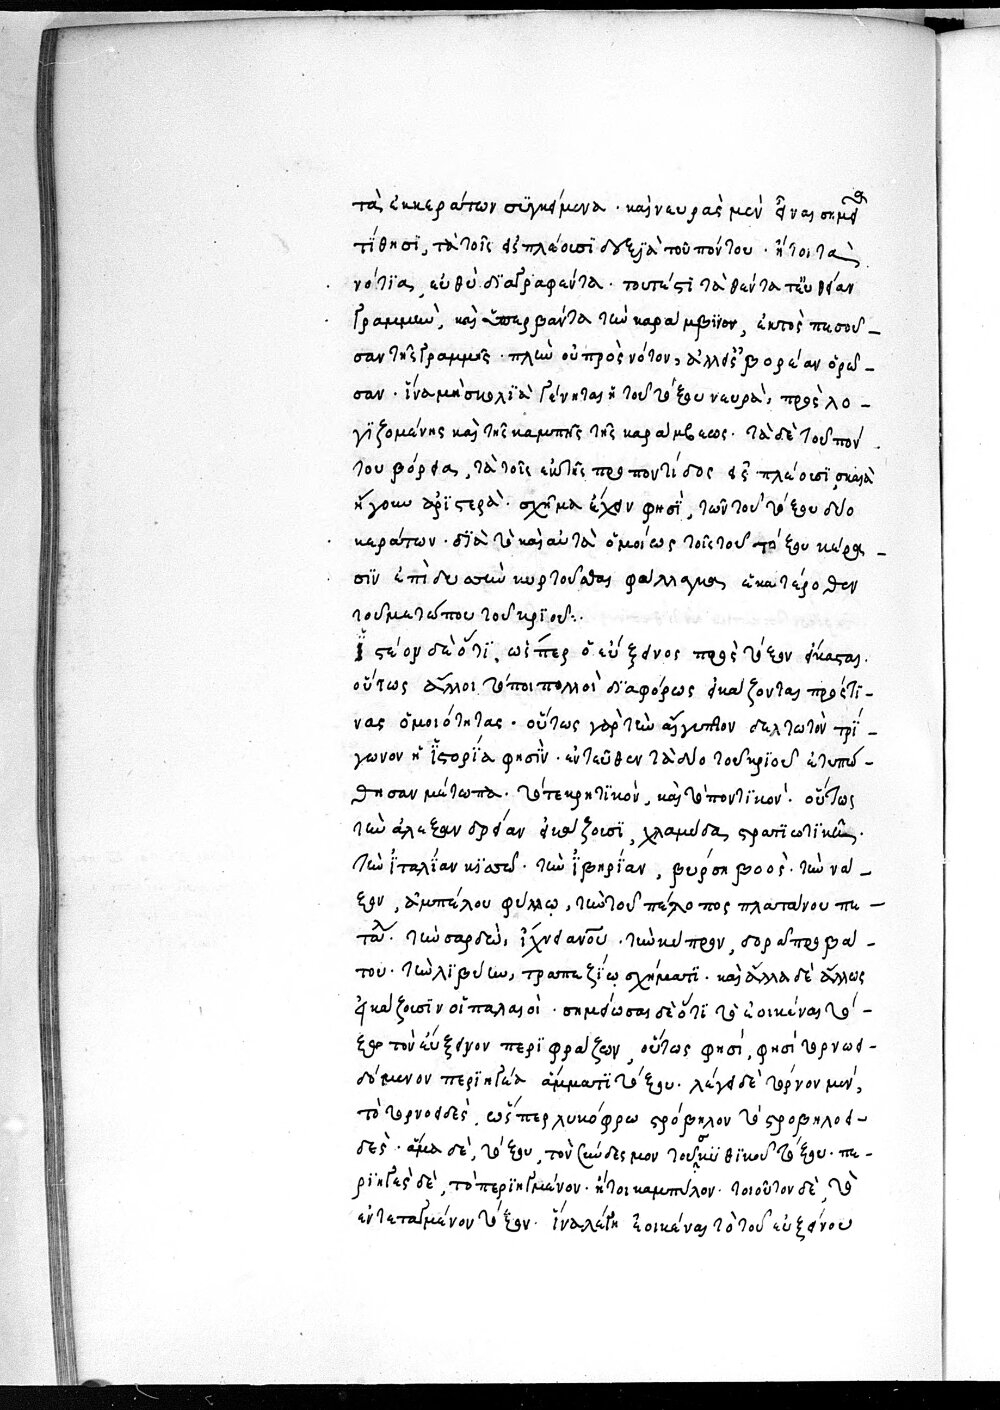 τὰ ἐκ κεράτων συγκείμενα· καὶ νευρὰς μὲν εἶναι σημεῖ
τίθησι, τὰ τοῖς εἰσπλέουσι δεξιὰ τοῦ πόντου· ἤτοι τὰ
νότια, εὐθὺ διαγραφέντα· τουτέστι ταθέντα τ' εὐθεῖαν
γραμμὴν, καὶ ὑπερβάντα τὴν κάραμβιν, ἐκτὸς πεσοῦ-
σαν τῆς γραμμῆς· πλὴν οὐ πρὸς νότον, ἀλλ' ἐς βορέαν ὁρῶ-
σαν· ἵνα μὴ σκολιὰ γένηται ἡ τοῦ τόξου νευρὰ, προσλο-
γιζομένης καὶ τῆς καμπῆς τῆς καράμβεως· τὰ δὲ τοῦ πόν
του βόρεια, τὰ τοῖς ἐκ τῆς προποντίδος εἰσπλέουσι, σκαιὰ
ἤγουν ἀριστερὰ· σχῆμα ἔχειν φησὶ, τῶν τοῦ τόξου δύο
κεράτων· διὰ τὸ καὶ αὐτὰ ὁμοίως τοῖς τοῦ τόξου κέρα-
σιν ἐπὶ δυσὶν κυρτοῦσθαι φάλαγγας ἑκατέρωθεν
τοῦ μετώπου τοῦ κριοῦ:
Ἰστέον δὲ ὅτι, ὥσπερ ὁ εὔξεινος πρὸς τόξον εἴκασται·
οὕτως ἄλλοι τόποι πολλοὶ διαφόρως εἰκάζονται πρός τι-
νας ὁμοιότητας· οὕτως γὰρ τὴν αἴγυπτον δελτωτὸν τρί-
γωνον ἡ ἱστορία φησὶν· ἐντεῦθεν τὰ δύο τοῦ κριοῦ ἐτυπώ-
θησαν μέτωπα· τό τε κρητικὸν, καὶ τὸ ποντικὸν· οὕτως
τὴν ἀλεξανδρείαν εἰκάζουσι, χλαμύδα στρατιωτικὴν·
τὴν ἰταλίαν κισσῶ· τὴν ἰβηρίαν, βύρση βοὸς· τὴν νά-
ξον, ἀμπέλου φύλλῳ, τὴν τοῦ πέλοπος πλατάνου πε-
τάλ· τὴν σαρδὼ, ἴχνει ἀνοῦ· τὴν κύπρον, δορᾶ προβά-
του· τὴν λιβύην, τραπεζίῳ σχήματι· καὶ ἄλλα δὲ ἄλλως
εἰκάζουσιν οἱ παλαιοὶ· σημείωσαι δὲ ὅτι τὸ ἐοικέναι τό-
ξῳ τὸν εὔξεινον περιφράζων, οὕτως φησὶ, φησὶ τορνωει-
δόμενον περιηγέα ἅμματι τόξου· λέγει δὲ τόρνον μὲν,
τὸ τορνοειδὲς, ὥσπερ λυκόφρω στρόβηλον τὸ στροβηλοει-
δὲς· ἅμα δὲ, τόξου, τὸν σύνδεσμον τοῦ σκυθικοῦ τόξου· πε-
ριηγὲς δὲ, τὸ περιηγμένον· ἤτοι καμπύλον· τοιοῦτον δὲ, τὸ
ἐντεταγμένον τόξον· ἵνα λέγῃ ἐοικέναι τὸ τοῦ εὐξείνου